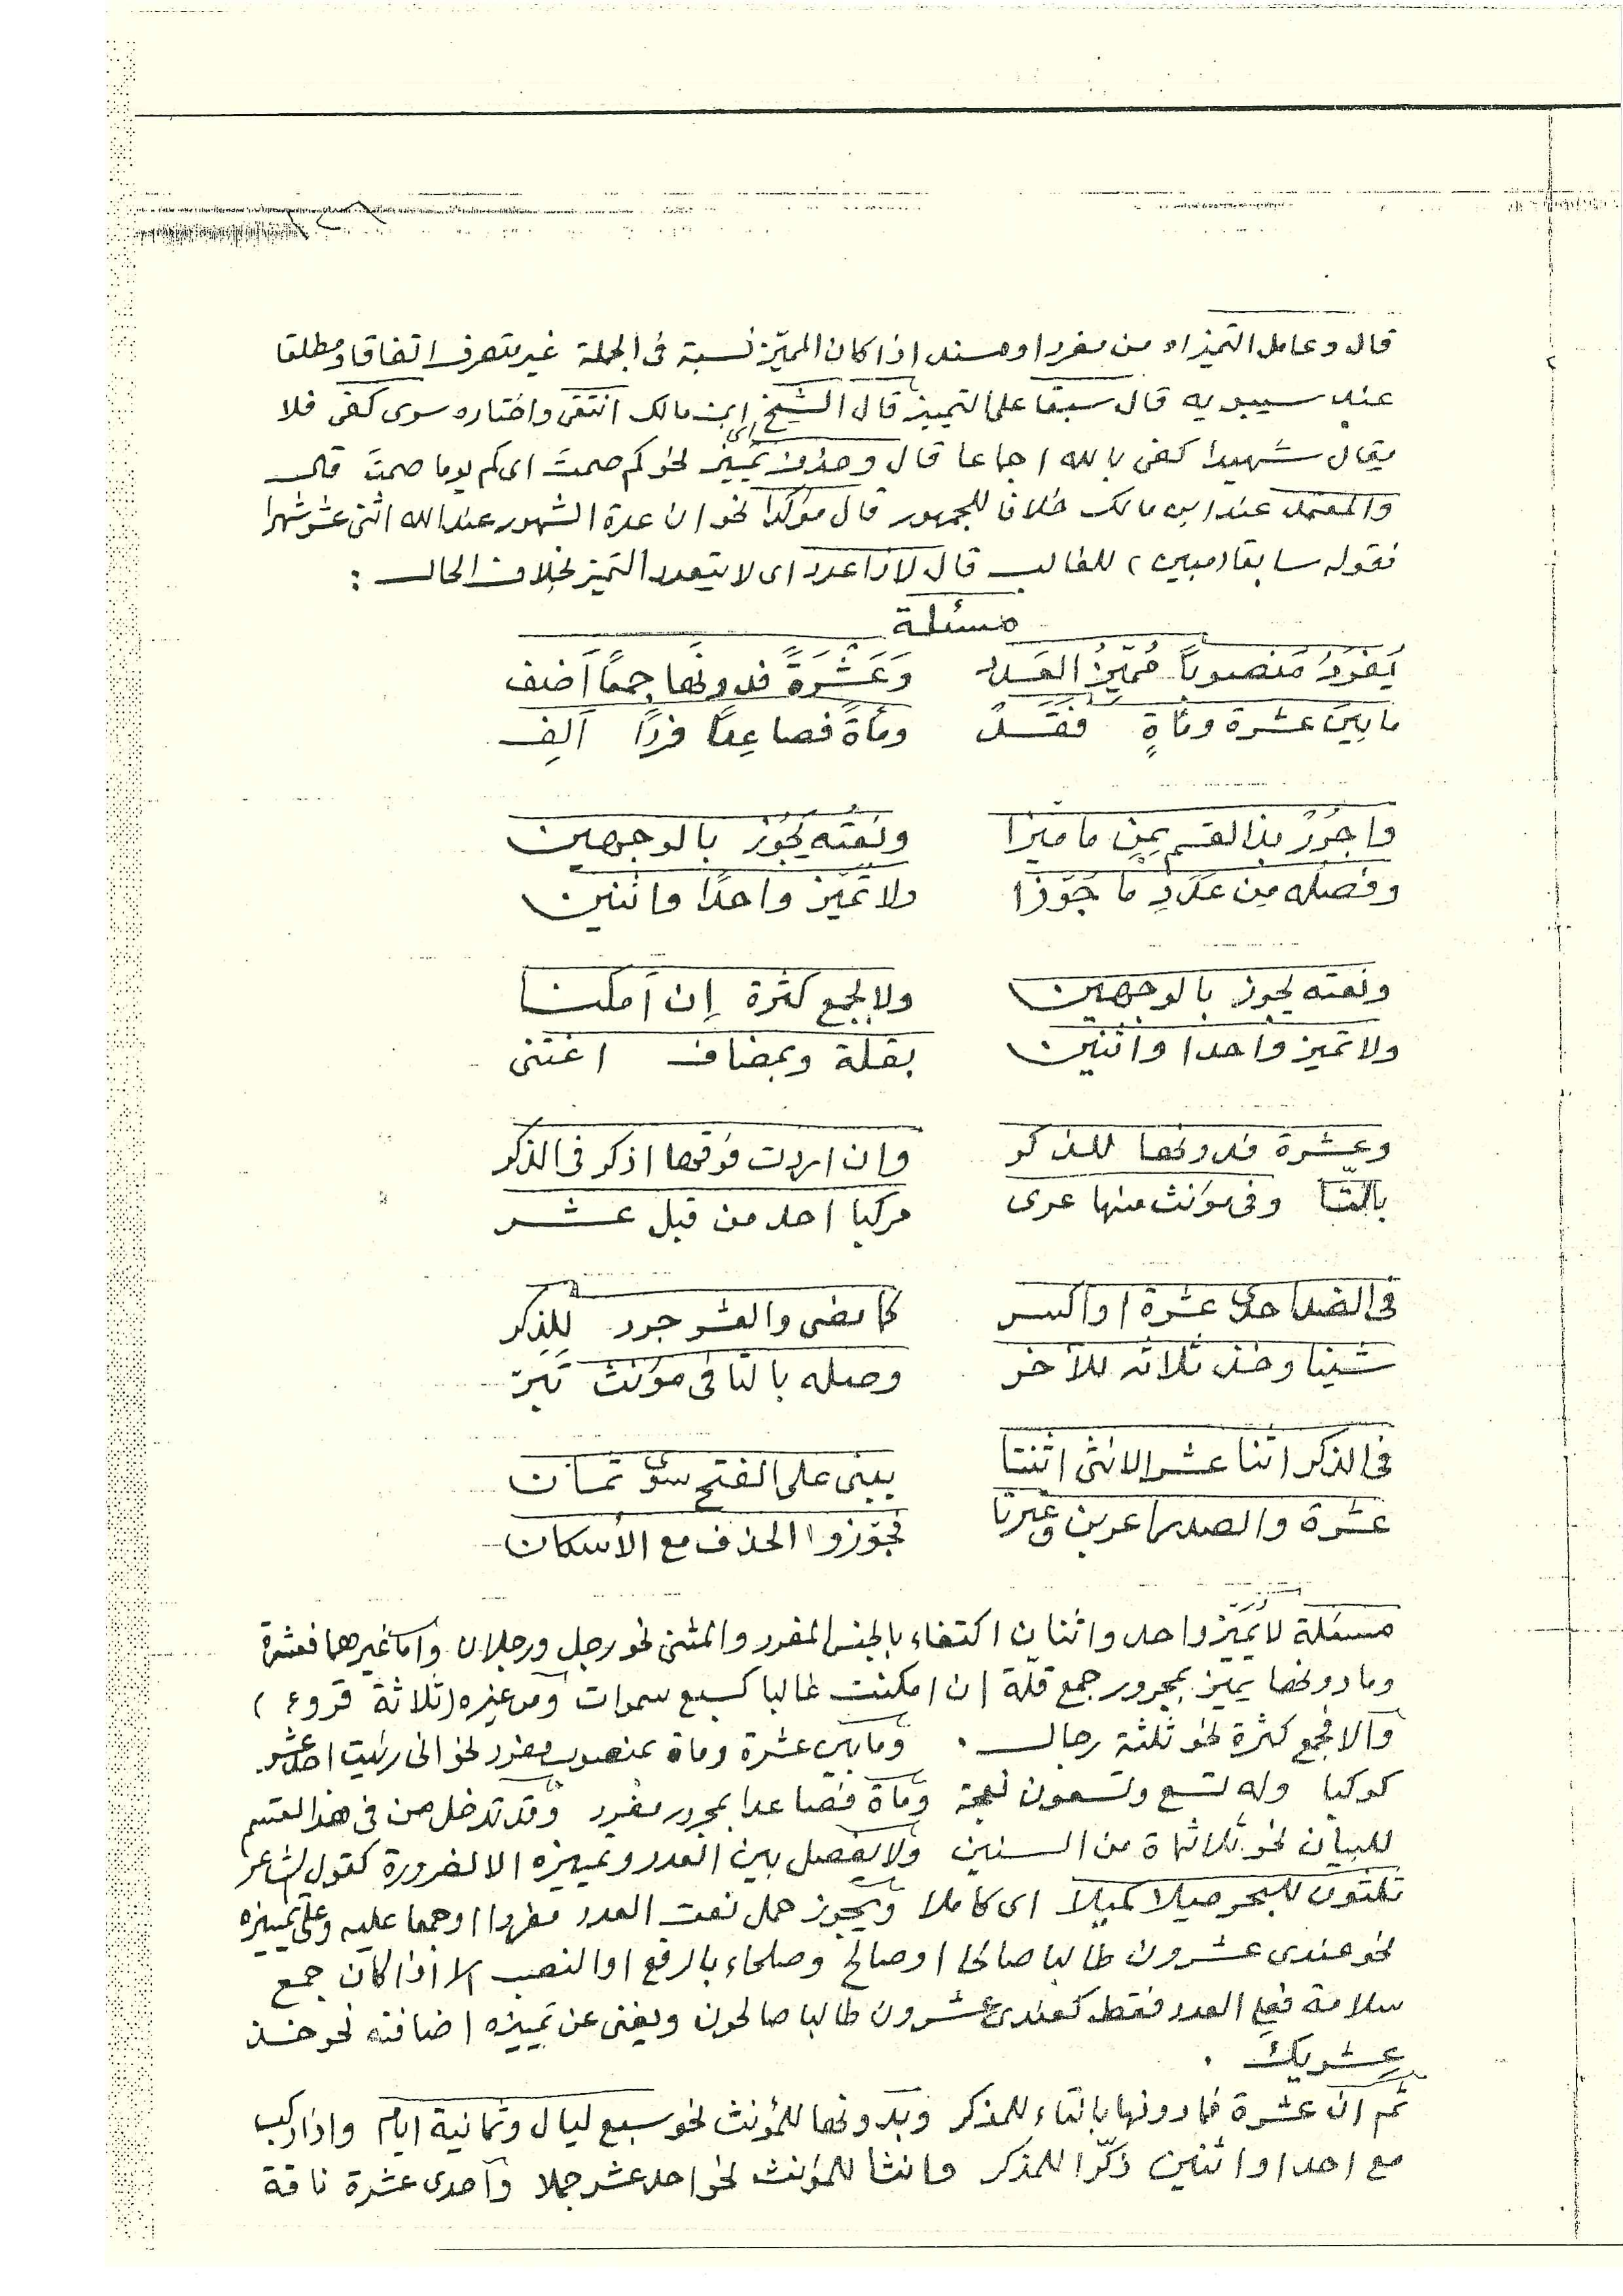 قال وعامل التميز اه من مفرد او مسند اذا كان المميّز نسبة فى الجملة غير متصرف اتفاقا ومطلقا
عند سيبويه قال سبقا على التمييز قال الشيخ ابن مالك انتقى واختاره سوى كفى فلا
يقال شهيدا كفى بالله اجماعا قال وحذف تمييز نحو كم صمت اى كم يوما صمتَ قال
والمعتمد عند ابن مالك خلافا للجمهور قال مؤكدا نحو ان عدة الشهور عند الله اثنى عشر شهرا
فقوله سابقا مبين للغالب قال لا ذا عدد اى لا يتعدد التميز بخلاف الحال :
مسئلة
يُفرَدُ مَنصوباً مُمَيِّزُ العَدد وَعَشْرَةً فدونها جمعًا أضف
ما بين عشرة ومأةٍ فقَد ومأةً فصاعِدًا فردًا أَلِف
واجرُرْ بذا القسم بِمِن ما ميزا ونعتُه يجُوز بالوجهين
وفصلُه مِن عدَدٍ ما جَوَّزا ولا تُميّز واحدًا واثنين
ونعته يجوز بالوجهين ولا بجمع كثرة إن أمكنا
ولا تميز واحدا واثنين بقلة وبمضاف اغتنى
وعشرة فدونها للذكر وان اردت فوقها اذكر فى الذكر
بالتّا وفى مؤنث منها عرى مركبا احد من قبل عشر
فى الضد احدى عشرة او اكسر كما مضى والعشر جرد للذكر
شينا وخذ ثلاثه للآخر وصله بالتا فى مؤنث تبرّ
فى الذكر اثنا عشر الانثى اثنتا يبنى على الفتح سوى ثمان
عشرة والصدر اعربن وغيرتا فجوّزوا الحذف مع الأسكان
مسئلة لا يُميَّز واحد واثنان اكتفاء بالجنس المفرد والمثنى نحو رجل ورجلان واما غيرهما فعشرة
وما دونها يميّز بمجرور جمع قلّة ان امكنت غالبا كسبع سموات ومن غيره (ثلاثة قروء)
والا فجمع كثرة نحو ثلثة رجال . وما بين عشرة ومأة بمنصوب مفرد نحو انى رئيت احد عشر
كوكبا وله تسع وتسعون نعجة ومأة فصاعدا بمجرور مفرد وقد تدخل من فى هذا القسم
للبيان نحو ثلاثمأة من السنين ولا يفصل بين العدد وتمييزه الا لضرورة كقول الشاعر
ثلثون للهجر ميلا كميلاً اى كاملا ويجوز حمل نعت العدد مفردا او جمعا عليه وعلى تمييزه
نحو عندى عشرون طالبا صالحا او صالح وصلحاء بالرفع او النصب الا اذا كان جمع
سلامة فعلى العدد فقط كعندى عشرون طالبا صالحون ويغنى عن تمييزه اضافته نحو خذ
عشريك .
ثم ان عشرة فما دونها بالتاء للمذكر وبدونها للمؤنث نحو سبع ليال وثمانية ايام واذا ركب
مع احد او اثنين ذكّرا للمذكر وانثا للمؤنث نحو احد عشر جملا واحدى عشرة ناقة